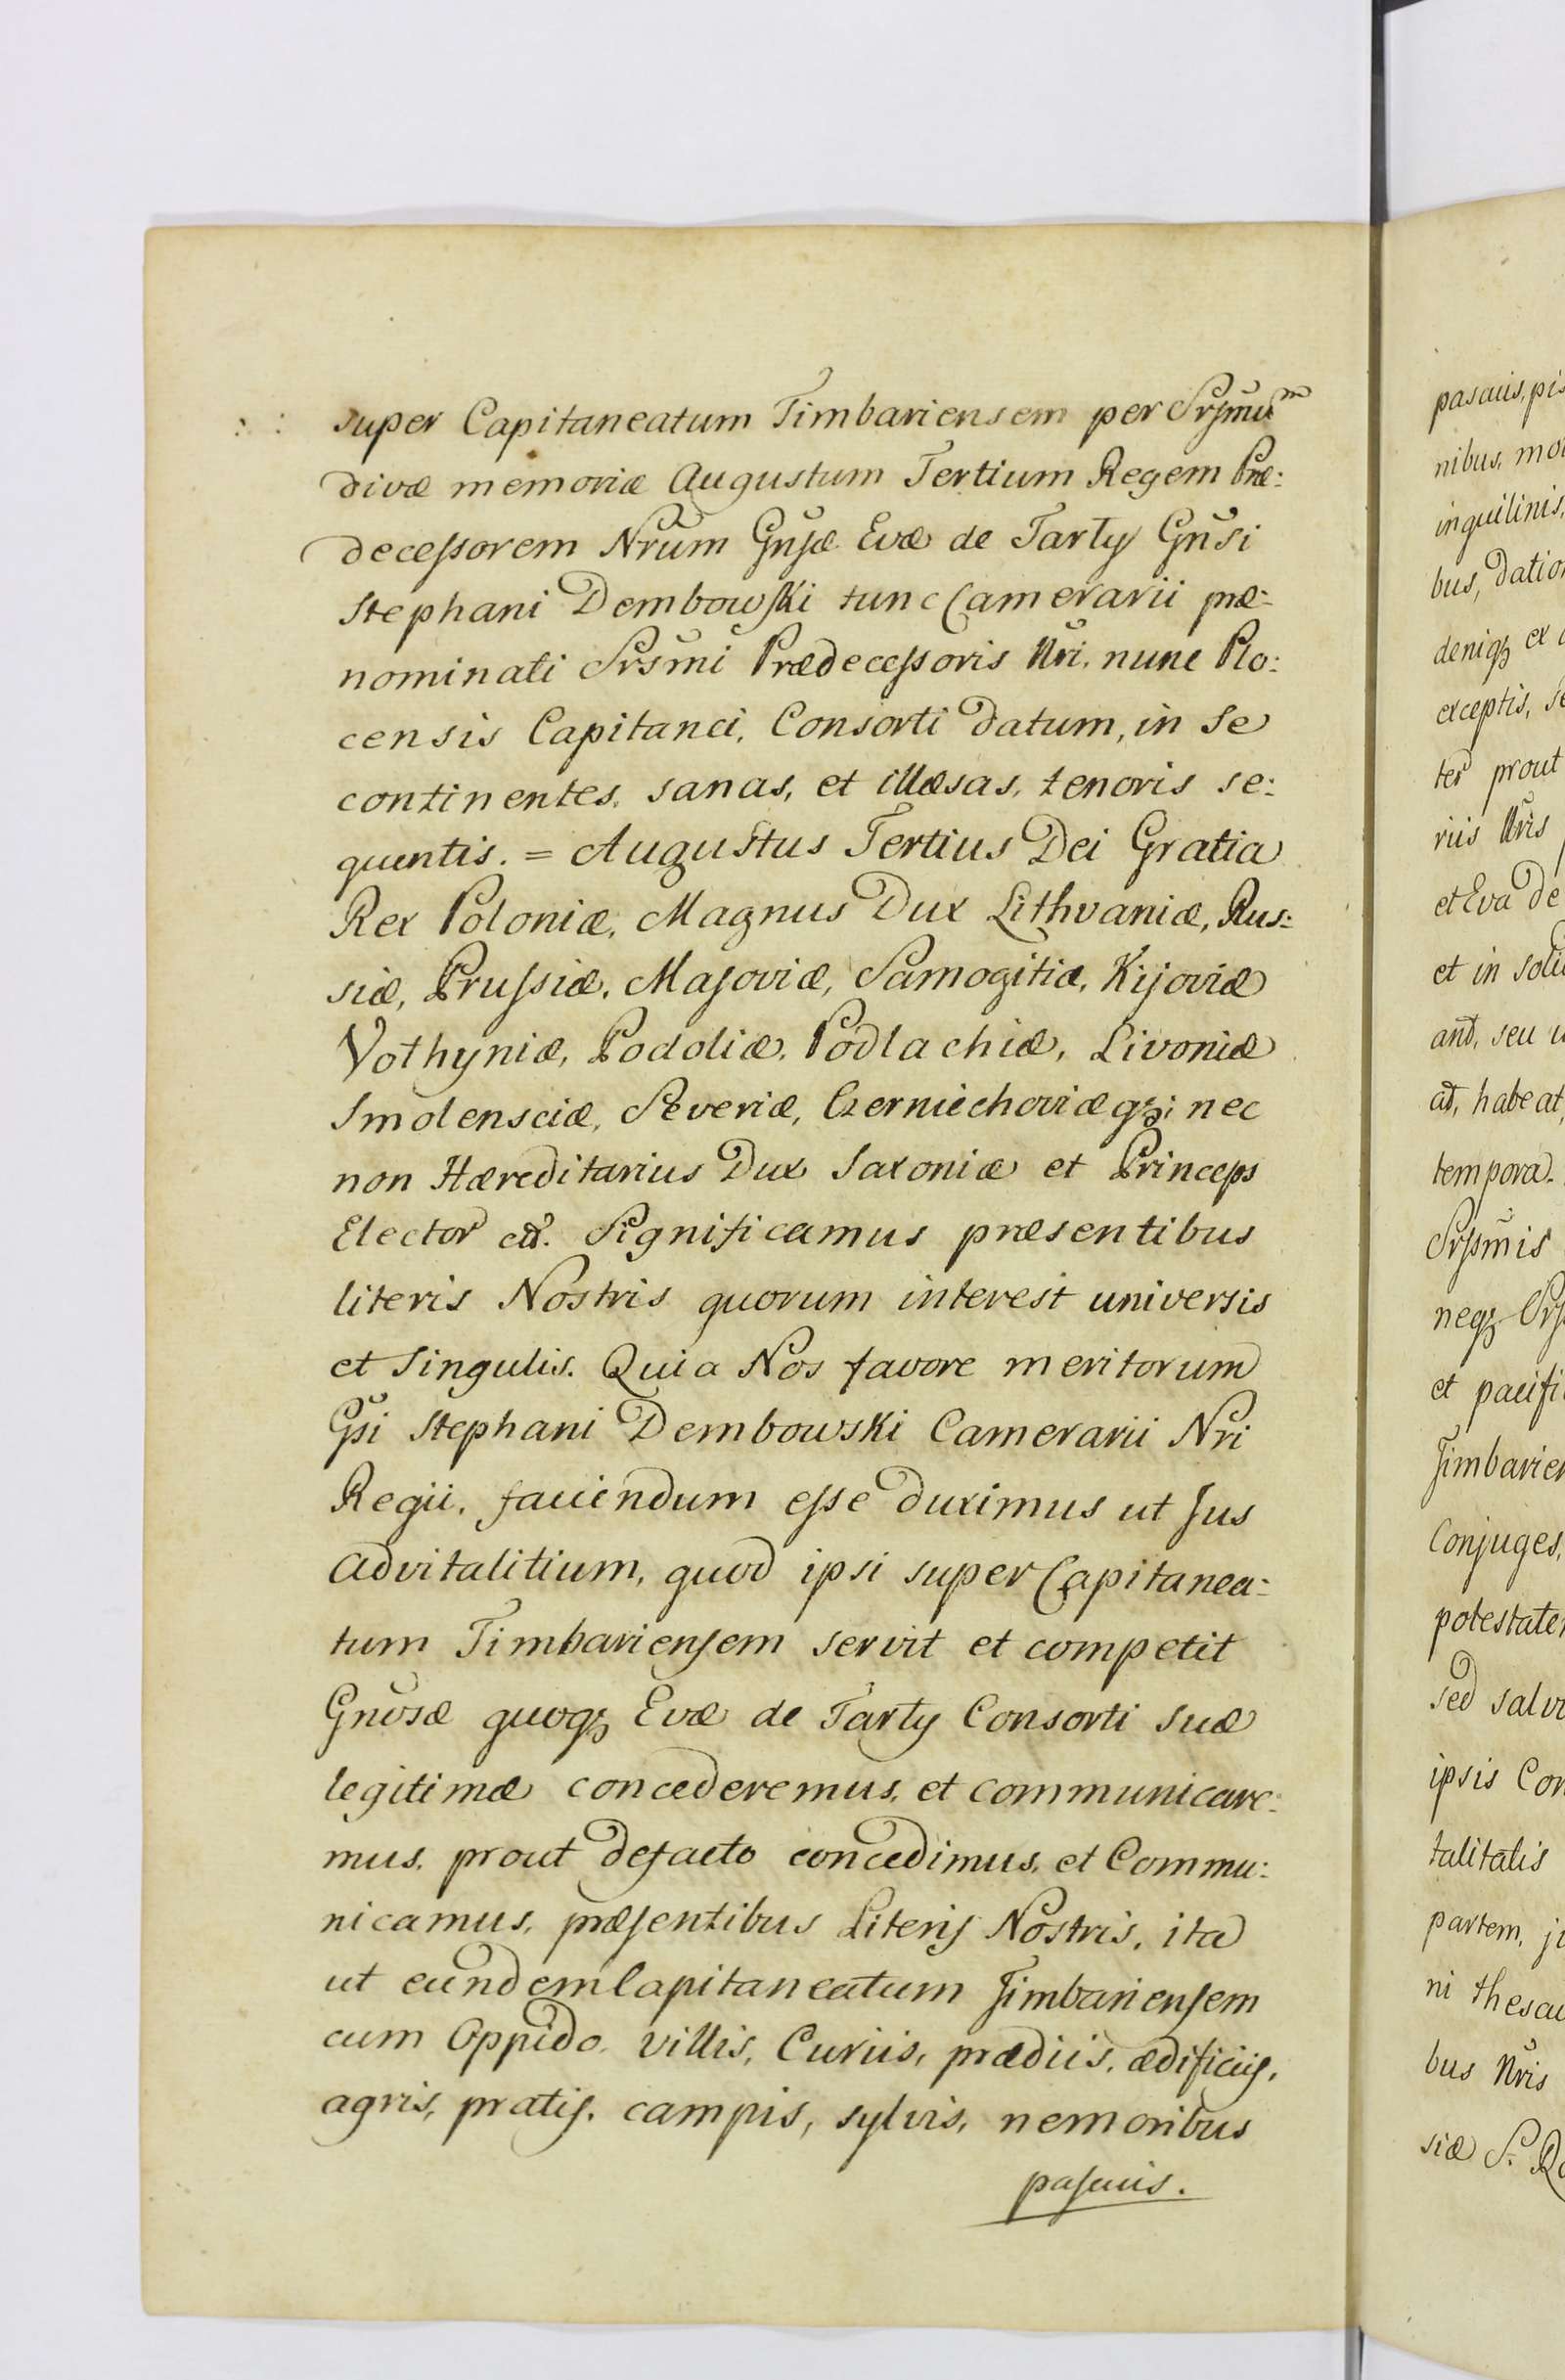 super Capitaneatum Timbariensem per Srsmu͠m
divæ memoriæ Augustum Tertium Regem Præ:
decessorem Nrũm Gnsæ Evæ de Tarły Gnũsi
Stephani Dembowski tunc Camerarii præ:
nominati Srsm̃i Prædecessoris Nri, nunc Plo:
censis Capitanei, Consorti datum, in se
continentes, sanas, et illæsas, tenoris se:
quentis. = Augustus Tertius Dei Gratia
Rex Poloniæ, Magnus Dux Lithvaniæ, Rus:
siæ, Prussiæ, Masoviæ, Samogitiæ, Kijoviæ
Vothyniæ, Podoliæ, Podlachiæ, Livoniæ
Smolensciæ, Severiæ, Czerniechoviæqꝫ; nec
non Hæreditarius Dux Saxoniæ et Princeps
Elector Significamus præsentibus
literis Nostris quorum interest universis
et Singulis. Quia Nos favore meritorum
Gsi Stephani Dembowski Camerarii Nri
Regii, faciendum esse duximus ut Jus
advitalitium, quod ipsi super Capitanea:
tum Timbariensem servit et competit
Gnosæ quoqꝫ Evæ de Tarły Consorti suæ
legitimæ concederemus, et communicare:
mus, prout defacto concedimus, et Commu:
nicamus, præsentibus Literis Nostris, ita
ut eundem Capitaneatum Timbariensem
cum Oppido, villis, Curiis, prædiis, ædificiis,
agris, pratis, campis, sylvis, nemoribus
pascuis.
pascuis, pis
nibus, mo
inquilinis,
bus, datio
deniqꝫ ex
exceptis, se
ter prout
riis Nris
et Eva de
et in soli
ant, seu
at, habeat,
tempora.
Srssmis
neqꝫ Srs
et pacifi
Timbarien
Conjuges,
potestatem
sed salv
ipsis Con
talitatis
partem, j
ni thesau
bus Nris
siæ S. R